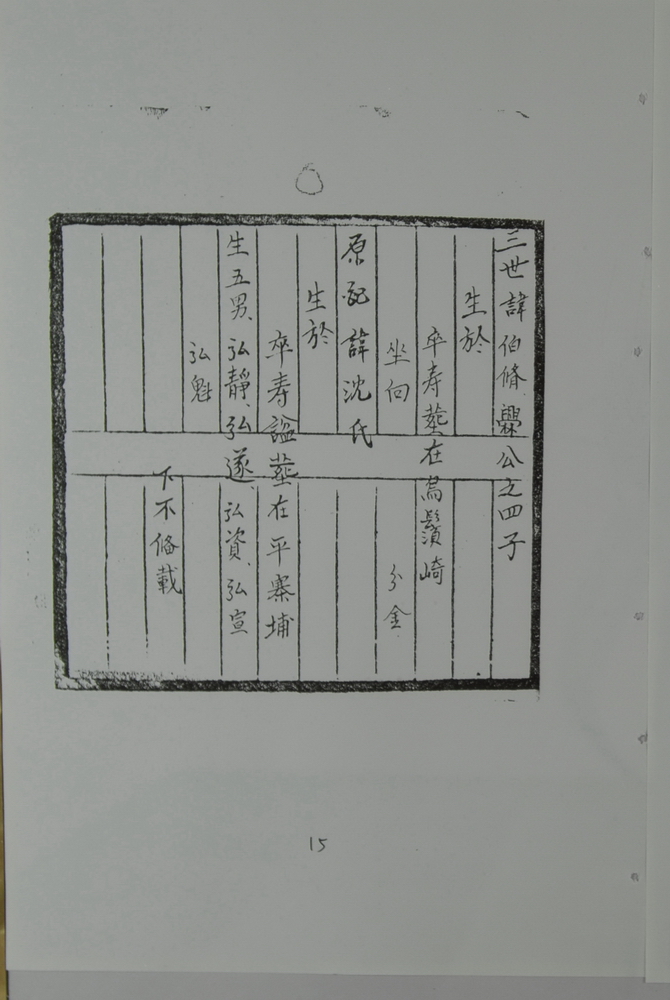 三世諱伯脩 公之四子
生於
卒寿 葬在烏鬚崎
坐向 分金
原配諱沈氏
生於
卒寿 謚 葬在平寨埔
生五男、弘靜、弘遂、弘資、弘宣
弘魁
下不俻載
15